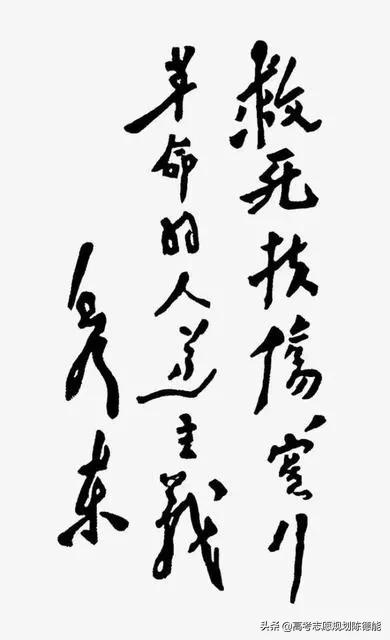 救死扶傷、實行
革命的人道主義
毛澤東
头条 @高考志愿规划陈德能